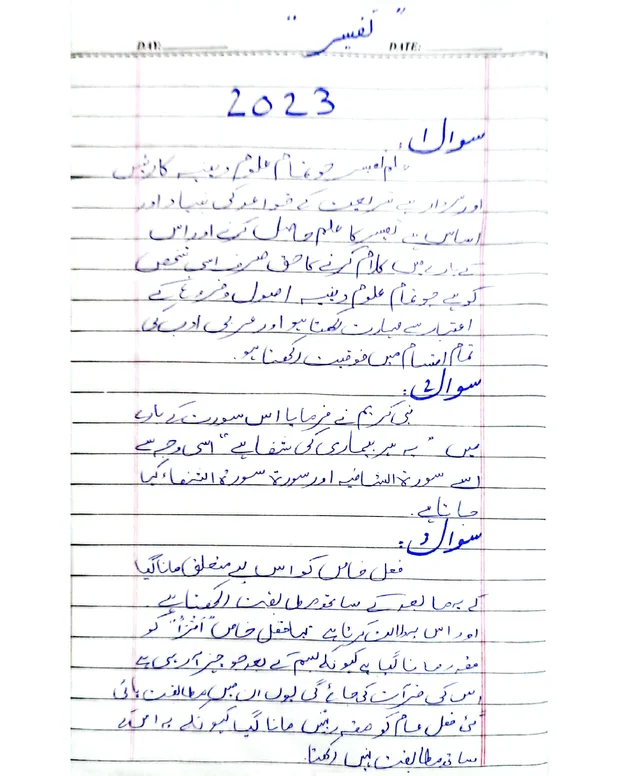 "تفسیر"
DAY: DATE:
2023
سوال 1:
علم تفسیر جو تمام علوم دینیہ کا رئیس
اور سردار ہے شریعت کے قواعد کی بنیاد اور
اساس ہے تفسیر کا علم حاصل کرنے اور اس
کے بارے میں کلام کرنے کا حق صرف اسی شخص
کو ہے جو تمام علوم دینیہ اصول و فروع کے
اعتبار سے مہارت رکھتا ہو اور عربی ادب کی
تمام اقسام میں فوقیت رکھتا ہو۔
سوال 2:
نبی کریم نے فرمایا اس سورت کے بارے
میں "یہ ہر بیماری کی شفا ہے" اسی وجہ سے
اسے سورۃ الشافیہ اور سورۃ سورۃ الشفاء کہا
جاتا ہے۔
سوال 3:
فعل خاص کو اس لیے متعلق مانا گیا
کہ یہ ما بعد کے ساتھ مطابقت رکھتا ہے۔
اور اس پر دلالت کرتا ہے فعل خاص "اقرأ" کو
مقدر مانا گیا ہے کیونکہ بسم کے بعد جو چیز آ رہی ہے
اس کی قرأت کی جائے گی یوں ان میں مطابقت پائی
گئی فعل عام کو مقدر نہیں مانا گیا کیونکہ یہ اس کے
ساتھ مطابقت نہیں رکھتا۔